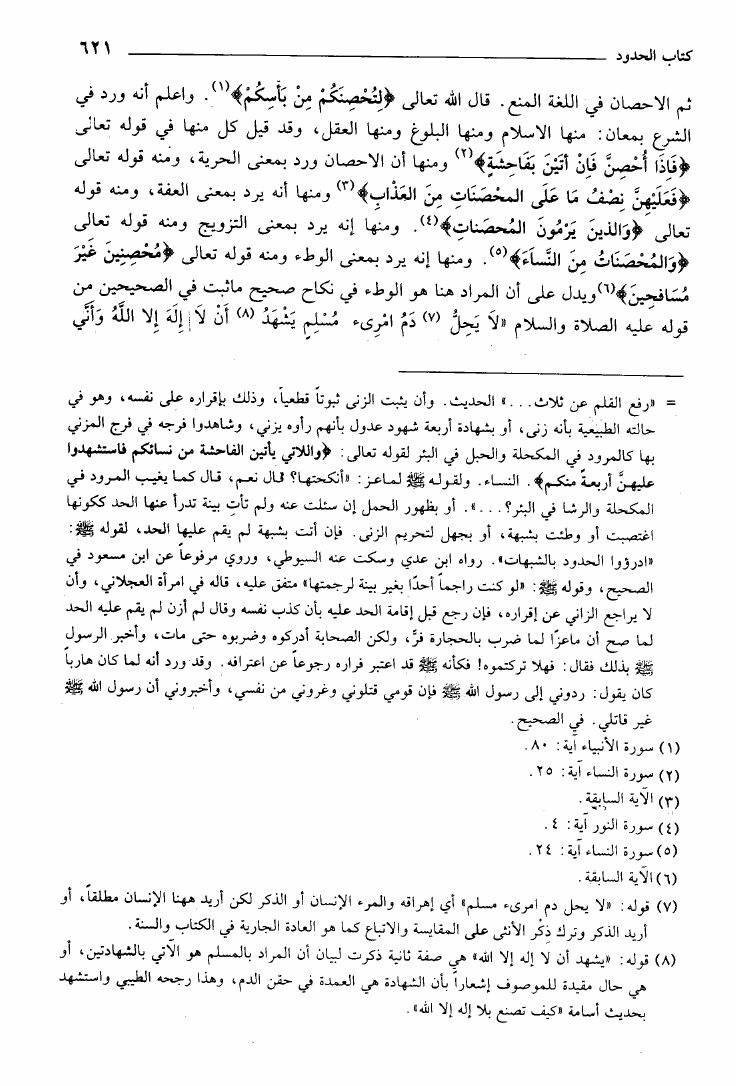 كتاب الحدود ٦٢١
ثم الاحصان في اللغة المنع. قال الله تعالى ﴿لِتُحْصِنَكُمْ مِنْ بَأسِكُمْ﴾(١). واعلم أنه ورد في
الشرع بمعان: منها الاسلام ومنها البلوغ ومنها العقل، وقد قيل كل منها في قوله تعالى
﴿فَإذَا أُحْصِنَّ فَإنْ أتَيْنَ بِفَاحِشَةٍ﴾(٢) ومنها أن الاحصان ورد بمعنى الحرية، ومنه قوله تعالى
﴿فَعَلَيْهِنَّ نِصْفُ مَا عَلَى المحْصَنَاتِ مِنَ العَذَابِ﴾(٣) ومنها أنه يرد بمعنى العفة، ومنه قوله
تعالى ﴿وَالذينَ يَرْمُونَ المُحصَناتِ﴾(٤). ومنها إنه يرد بمعنى التزويج ومنه قوله تعالى
﴿وَالمُحْصَنَاتُ مِنَ النَّسَاَءِ﴾(٥). ومنها إنه يرد بمعنى الوطء ومنه قوله تعالى ﴿مُحْصِنِينَ غَيْرَ
مُسَافِحِينَ﴾(٦)ويدل على أن المراد هنا هو الوطء في نكاح صحيح ماثبت في الصحيحين من
قوله عليه الصلاة والسلام «لاَ يَحِلُّ (٧) دَمُ امْرِىء مُسْلِمٍ يَشْهَدُ (٨) أَنْ لاَ إِلَهَ إلا اللَّهُ وَأَنَّي
= «رفع القلم عن ثلاث...» الحديث. وأن يثبت الزنى ثبوتاً قطعياً، وذلك بإقراره على نفسه، وهو في
حالته الطبيعية بأنه زنى، أو بشهادة أربعة شهود عدول بأنهم رأوه يزني، وشاهدوا فرجه في فرج المزني
بها كالمرود في المكحلة والحبل في البئر لقوله تعالى: ﴿واللاتي يأتين الفاحشة من نسائكم فاستشهدوا
عليهنَّ أربعةً منكم﴾. النساء. ولقوله ﷺ لماعز: «أنكحتها؟ قال نعم، قال كما يغيب المرود في
المكحلة والرشا في البئر؟...». أو بظهور الحمل إن سئلت عنه ولم تأتِ بينة تدرأ عنها الحد ككونها
اغتصبت أو وطئت بشبهة، أو بجهل لتحريم الزنى. فإن أتت بشبهة لم يقم عليها الحد، لقوله ﷺ:
«ادرؤوا الحدود بالشبهات». رواه ابن عدي وسكت عنه السيوطي، وروي مرفوعاً عن ابن مسعود في
الصحيح، وقوله ﷺ: «لو كنت راجماً أحدًا بغير بينة لرجمتها» متفق عليه، قاله في امرأة العجلاني، وأن
لا يراجع الزاني عن إقراره، فإن رجع قبل إقامة الحد عليه بأن كذب نفسه وقال لم أزن لم يقم عليه الحد
لما صح أن ماعزًا لما ضرب بالحجارة فرَّ، ولكن الصحابة أدركوه وضربوه حتى مات، وأخبر الرسول
ﷺ بذلك فقال: فهلا تركتموه! فكأنه ﷺ قد اعتبر فراره رجوعاً عن اعترافه. وقد ورد أنه لما كان هارباً
كان يقول: ردوني إلى رسول الله ﷺ فإن قومي قتلوني وغروني من نفسي، وأخبروني أن رسول الله ﷺ
غير قاتلي. في الصحيح.
(١) سورة الأنبياء آية: ٨٠.
(٢) سورة النساء آية: ٢٥.
(٣) الآية السابقة.
(٤) سورة النور آية: ٤.
(٥) سورة النساء آية: ٢٤.
(٦) الآية السابقة.
(٧) قوله: «لا يحل دم امرىء مسلم» أي إهراقه والمرء الإنسان أو الذكر لكن أريد ههنا الإنسان مطلقاً، أو
أريد الذكر وترك ذِكْر الأنثى على المقايسة والاتباع كما هو العادة الجارية في الكتاب والسنة.
(٨) قوله: «يشهد أن لا إله إلا الله» هي صفة ثانية ذكرت لبيان أن المراد بالمسلم هو الآتي بالشهادتين، أو
هي حال مقيدة للموصوف إشعاراً بأن الشهادة هي العمدة في حقن الدم، وهذا رجحه الطيبي واستشهد
بحديث أسامة «كيف تصنع بلا إله إلا الله».